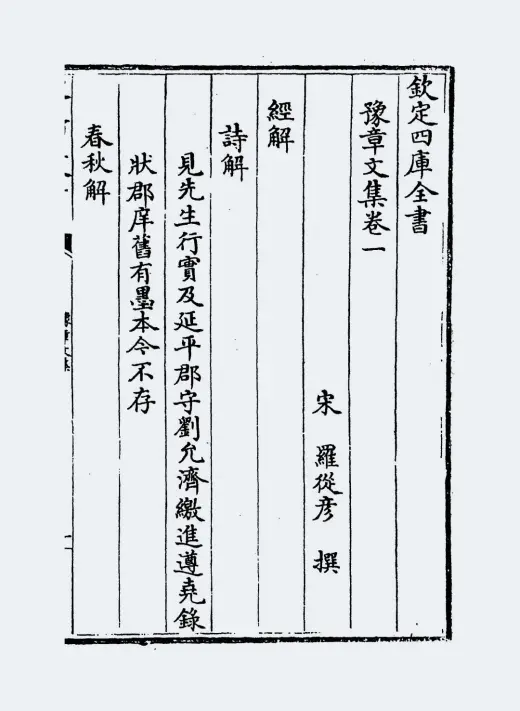 欽定四庫全書
豫章文集卷一
宋 羅從彦 撰
經解
詩解
見先生行實及延平郡守劉允濟繳進遵堯錄
狀郡庠舊有墨本今不存
春秋解
豫章文集